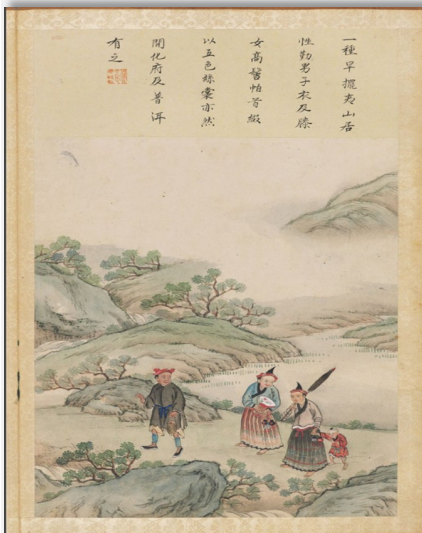 一種早擺夷山居
性勤男子衣反膝
女高髻帕首綴
以五色絲裳亦然
開化府及普洱
有之